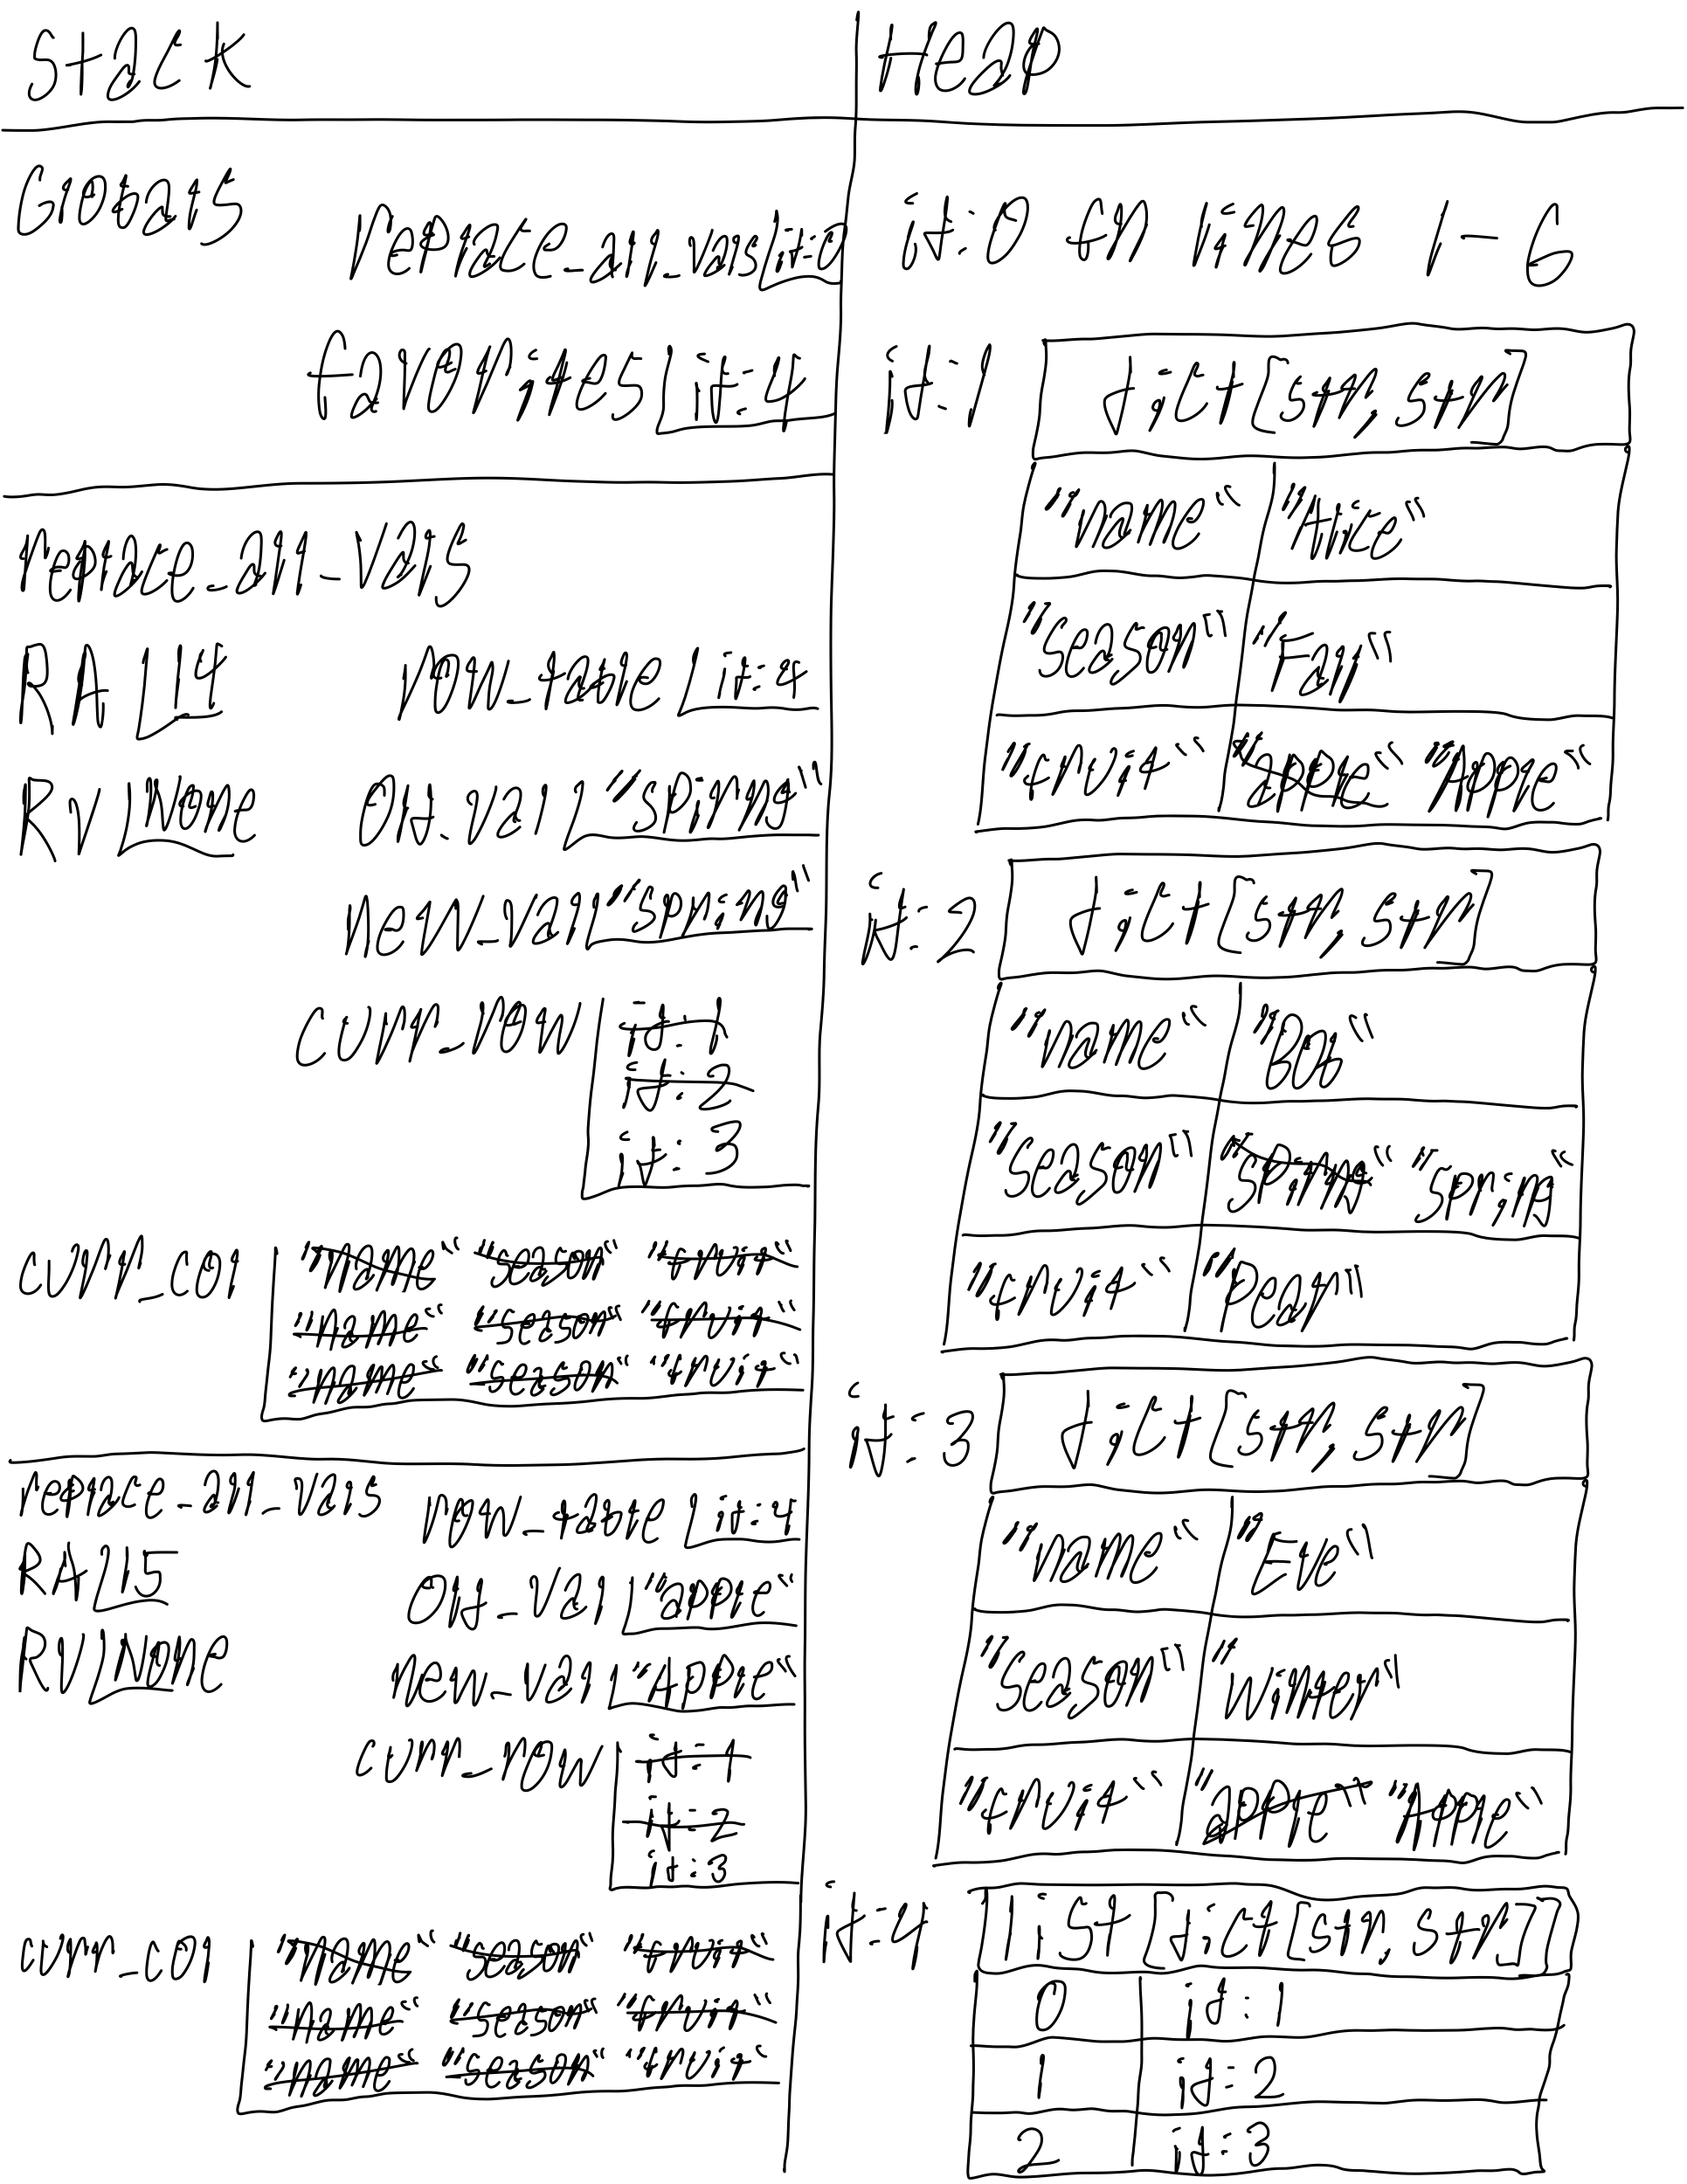 Stack
Globals
replace_all_vals id:0
favorites id:4
replace_all_vals
RA 14
row_table id:4
RV None
old_val "spirng"
new_val "spring"
curr_row id:1
id:2
id:3
curr_col "name" "season" "fruit"
"name" "season" "fruit"
"name" "season" "fruit"
replace_all_vals
row_table id:4
RA 15
old_val "apple"
RV None
new_val "Apple"
curr_row id:1
id:2
id:3
curr_col "name" "season" "fruit"
"name" "season" "fruit"
"name" "season" "fruit"
Heap
id:0 fn lines 1-6
id:1 dict[str, str]
"name" "Alice"
"season" "Fall"
"fruit" "apple" "Apple"
id:2 dict[str, str]
"name" "Bob"
"season" "spirng" "spring"
"fruit" "Pear"
id:3 dict[str, str]
"name" "Eve"
"season" "Winter"
"fruit" "apple" "Apple"
id:4 list[dict[str, str]]
0 id:1
1 id:2
2 id:3